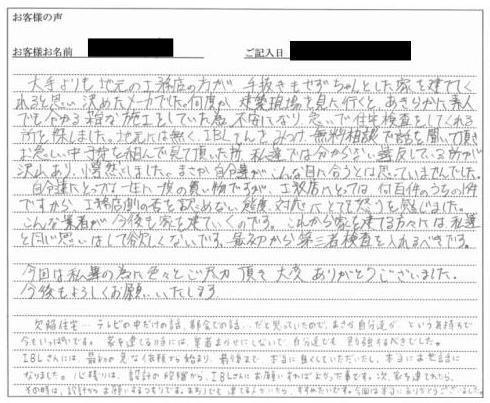 お客様の声
お客様お名前 ご記入日
大手よりも地元の工務店の方が、手抜きもせずちゃんとした家を建ててく
れると思い決めたメーカでした。何度か建築現場を見に行くと、あきらかに素人
でもわかる雑な施工をしていた為 不安になり 急いで住宅検査をしてくれる
所を探しました。地元には無く、IBLさんをみつけ 無料相談で話を聞いて頂き
お忙しい中予定を組んで見て頂いた所 私達では分からない違反している所が
沢山あり、愕然としました。まさか自分達が、こんな目に合うとは思っていませんでした。
自分達にとっては一生に一度の買い物ですが、工務店にとっては何百件のうちの1件
ですから、工務店側の否を認めない態度、対応にとても怒りを感じました。
こんな業者が今後も家を建てていくのです。これから家を建てる方々には私達
と同じ思いはして欲しくないです。最初から第三者検査を入れるべきです。
今回は私達の為に色々とご尽力頂き大変ありがとうございました。
今後もよろしくお願いいたします。
欠陥住宅…テレビの中だけの話、都会での話…だと思っていたので、まさか自分達が、という気持ちで
今もいっぱいです。家を建てる時には、業者まかせにしないで、自分達でも勉強するべきでした。
IBLさんには、最初の見なくお願いから始まり、最後まで、本当に良くしていただいたし、本当にお世話に
なりました。心残りは、設計の段階から、IBLさんにお願いすればよかった事です。次、家を建てれたら、
その時は、設計からお願いするつもりです。まわりでも建てる人がいたら、すすめたいです。今回は本当にありがとうございました。